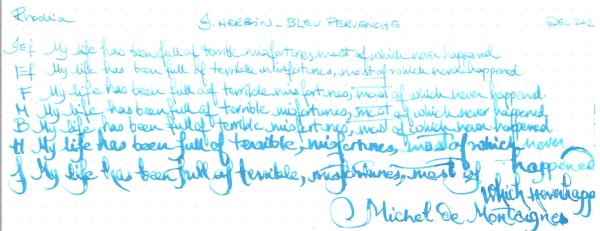 Rhodia J. HERBIN - BLEU PERVENCHE
EF My life has been full of terrible misfortunes, most of which never happened
EF My life has been full of terrible misfortunes, most of which never happened
F My life has been full of terrible misfortunes, most of which never happened
M My life has been full of terrible misfortunes, most of which never happened
B My life has been full of terrible misfortunes, most of which never happened
My life has been full of terrible, misfortunes, most of which never happened
My life has been full of terrible, misfortunes, most of which never
Michel de Montaigne